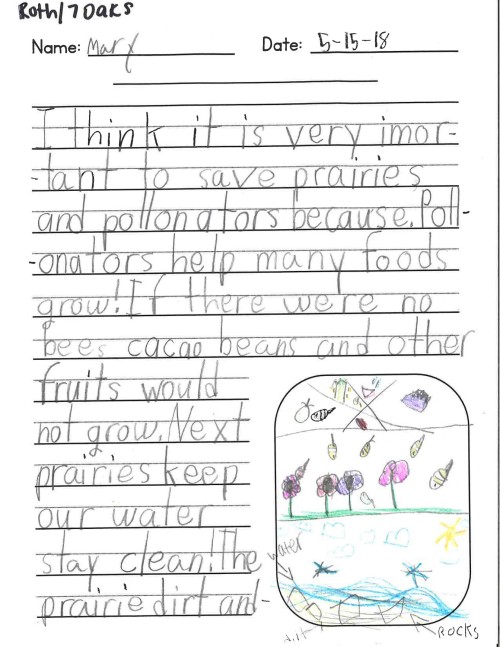 Roth/7 Oaks
Name: Mary
Date: 5-15-18
I think it is very imor-
-tant to save prairies
and pollonators because. Poll-
-onators help many foods
grow! If there were no
bees cacao beans and other
fruits would
not grow. Next
prairies keep
our water
stay clean! The
prairie dirt and-
water
dirt
ROCKS